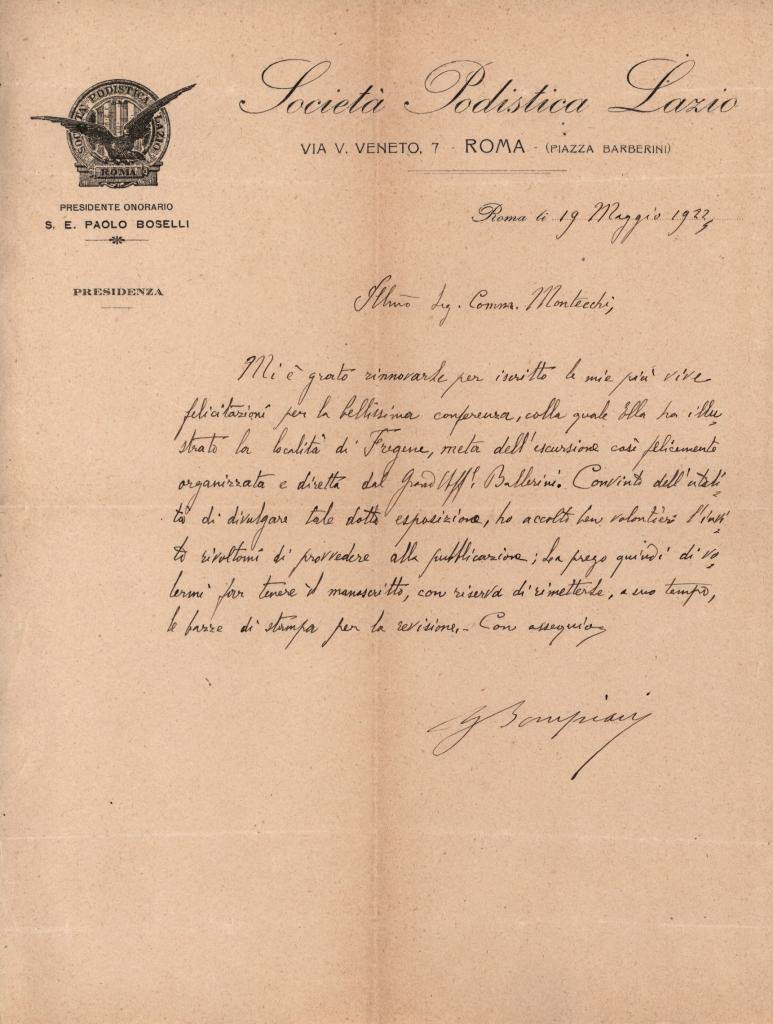 Società Podistica Lazio
VIA V. VENETO, 7 - ROMA - (PIAZZA BARBERINI)
SOCIETÀ PODISTICA LAZIO
ROMA
PRESIDENTE ONORARIO
S. E. PAOLO BOSELLI
PRESIDENZA
Roma li 19 Maggio 1922
Illmo Ing. Comm. Montecchi,
Mi è grato rinnovarLe per iscritto le mie più vive
felicitazioni per la bellissima conferenza, colla quale Ella ha illu=
strato la località di Fregene, meta dell'escursione così felicemente
organizzata e diretta dal Grand'Uff. Ballerini. Convinto dell'utili=
tà di divulgare tale dotta esposizione, ho accolto ben volontieri l'invi=
to rivoltomi di provvedere alla pubblicazione; La prego quindi di vo=
lermi far tenere il manoscritto, con riserva di rimetterLe, a suo tempo,
le bozze di stampa per la revisione. - Con ossequio
G Bompiani